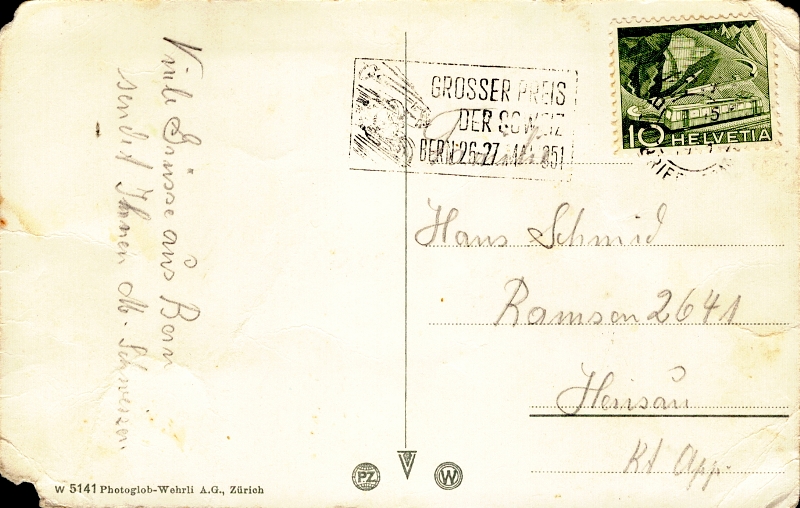 Viele Grüsse aus Bern
sendet Ihnen M. Schweizer
GROSSER PREIS
DER SCHWEIZ
BERN 26-27 MAI 1951
Familie
10 HELVETIA
Hans Schmid
Ramsen 2641
Herisau
Kt App.
W 5141 Photoglob-Wehrli A.G., Zürich
PZ
W